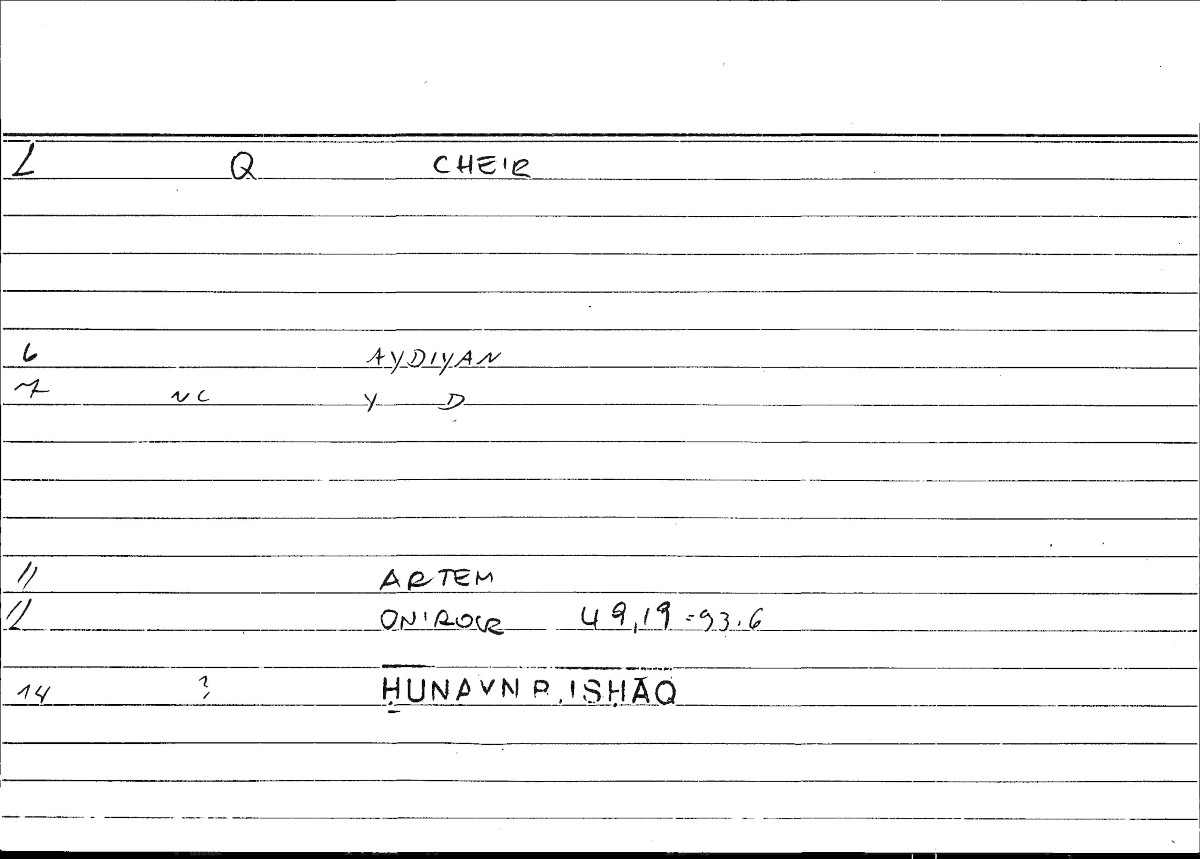 L Q CHEIR
6 AYDIYAN
7 NC Y D
11 ARTEM
12 ONIROCR 49,19 = 93.6
14 ? ḤUNAYN B. ISḤĀQ